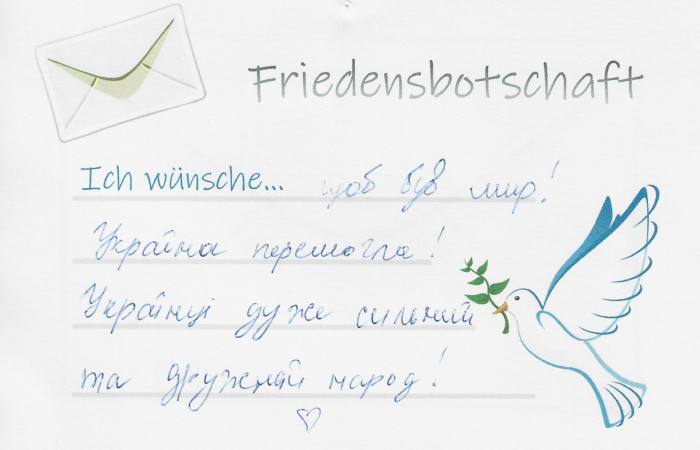 Friedensbotschaft
Ich wünsche... щоб був мир!
Україна перемогла!
Українці дуже сильний
та дружній народ!